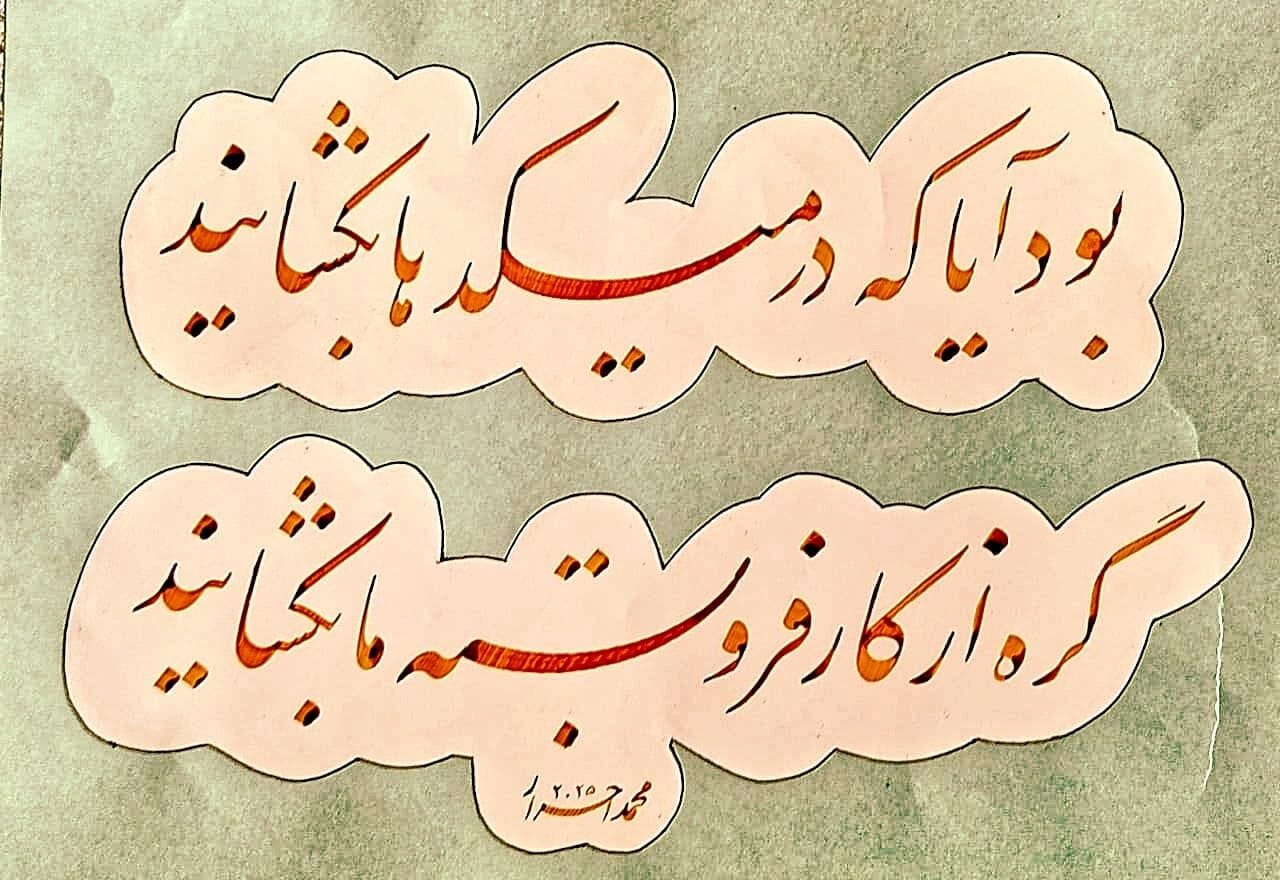 بود آیا که در میکدها بگشایند
گره از کار فروبسته ما بگشایند
محمد احرار ۲۰۲۵